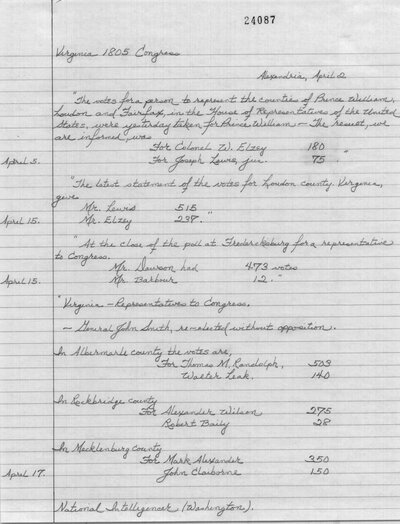 24087
Virginia 1805 Congress
Alexandria, April 2
"The votes for a person to represent the counties of Prince William,
Loudon and Fairfax, in the House of Representatives of the United
States, were yesterday taken for Prince William – The result, we
are informed, was
For Colonel W. Elzey 180
April 5. For Joseph Lewis, jun. 75 "
"The latest statement of the votes for Loudon county, Virginia,
give
Mr. Lewis 515
April 15. Mr. Elzey 237."
"At the close of the poll at Fredericksburg for a representative
to Congress.
Mr. Dawson had 473 votes
April 15. Mr. Barbour 12."
"Virginia – Representatives to Congress.
– General John Smith, re-elected without opposition.
In Albermarle county the votes are,
For Thomas M. Randolph, 503
Walter Leak. 140
In Rockbridge county
For Alexander Wilson 275
Robert Baily 28
In Mecklenburg county
For Mark Alexander 350
April 17. John Claiborne 150
National Intelligencer (Washington).